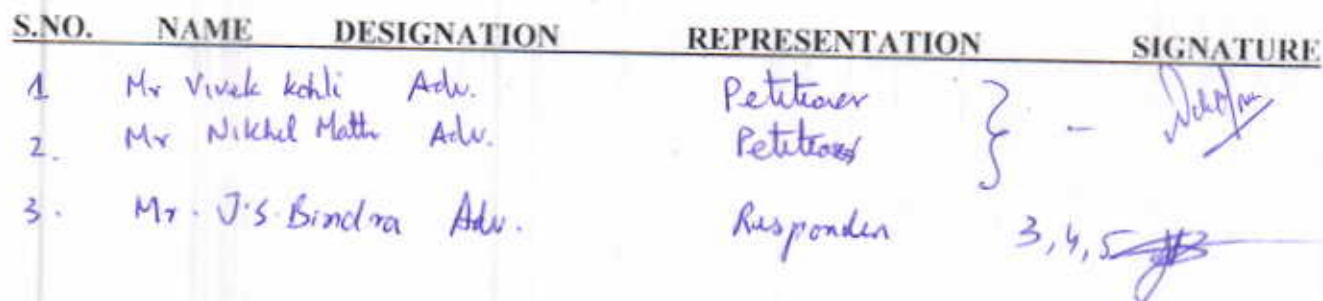 S.NO. NAME DESIGNATION REPRESENTATION SIGNATURE
1 Mr Vivek Kohli Adv. Petitioner } -
2. Mr Nikhil Math Adv. Petitioner
3. Mr. J.S. Bindra Adv. Responden 3,4,5